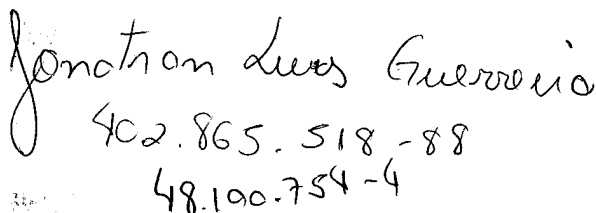 Jonathan Luas Guerreiro
402.865.518-88
48.190.754-4